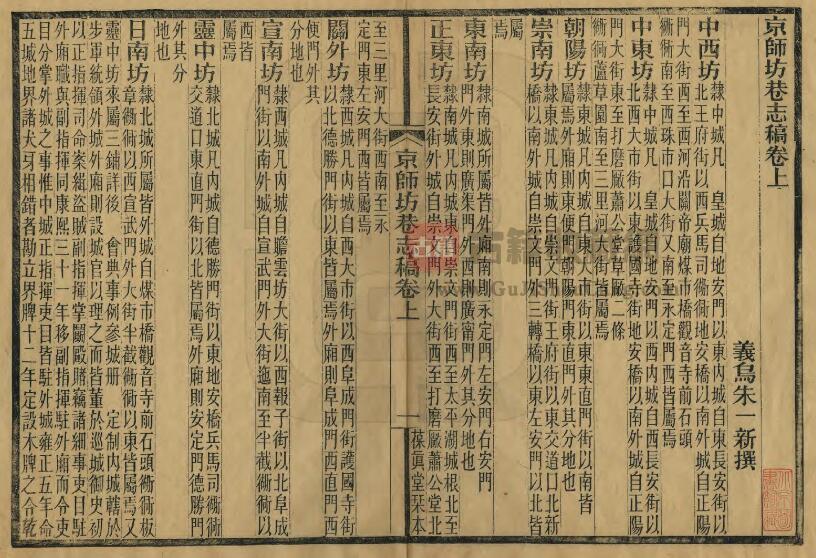 京師坊巷志稿卷上
義烏朱一新撰
中西坊
隸中城凡　皇城自地安門以東內城自東長安街以
北王府街以西兵馬司衚衕地安橋以南城自正陽
門大街西至西河沿關帝廟煤市橋觀音寺前石頭
衚衕南至西珠市口大街又南至永定門西皆屬焉
中東坊
隸中城凡　皇城自地安門以西內城自西長安街以
北西大市街以東護國寺街地安橋以南城自正陽
門大街東至打磨廠蕭公堂草廠二條
衚衕蘆草園南至三里河大街皆屬焉
朝陽坊
隸東城凡內城自東大市街以東東直門街以南皆
屬焉外廂則東便門朝陽門東直門外其分地也
崇南坊
隸東城凡內城自崇文門街王府街以東交道口北新
橋以南外城自崇文門外三轉橋以東左安門以北皆
屬
焉
東南坊
隸南城所屬皆外廂南則永定門左安門右安門
外東則廣渠門外西則廣甯門外其分地也
正東坊
隸南城凡內城東自崇文門街西至太平湖城根北至
長安街外城自崇文門外大街西至打磨廠蕭公堂北
京師坊巷志稿卷上
一
葆真堂栞本
至三里河大街西南至永
定門東左安門西皆屬焉
關外坊
隸西城凡內城自西大市街以西阜成門街護國寺街
以北德勝門街以東皆屬焉外廂則阜成門西直門西
便門外其
分地也
宣南坊
隸西城凡內城自瞻雲坊大街以西報子街以北阜成
門街以南外城自宣武門外大街迤南至半截衚衕以
西皆
屬焉
靈中坊
隸北城凡內城自德勝門街以東地安橋兵馬司衚衕
交道口東直門街以北皆屬焉外廂則安定門德勝門
外其分
地也
日南坊
隸北城所屬皆外城自煤市橋觀音寺前石頭衚衕板
章衚衕以西宣武門外大街半截衚衕以東皆屬焉又
靈中坊來屬三鋪詳後　會典事例參城冊　定制內城轄於
步軍統領外城外廂則設城官以理之而皆董於巡城御史初
以正指揮司命案緝盜賊副指揮掌鬭毆賭竊諸細事吏目駐
外廂職與副指揮同康熙三十一年移副指揮駐外廂而令吏
目分掌外城之事惟中城正指揮吏目皆駐外城雍正五年命
五城地界諸犬牙相錯者勘立界牌十二年定設木牌之令乾